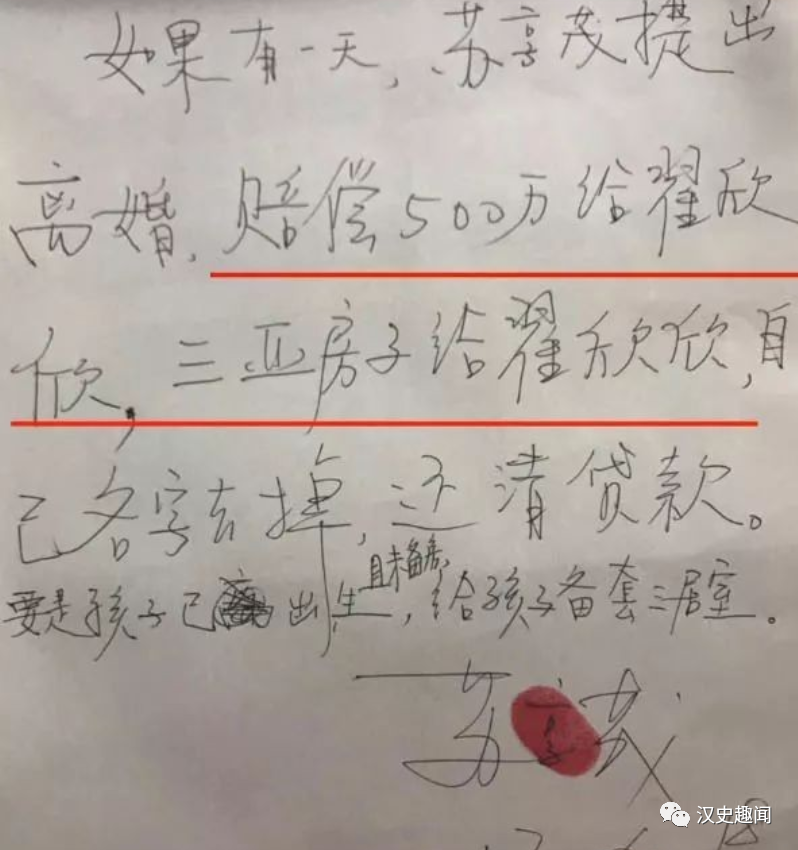 如果有一天,苏享茂提出
离婚,赔偿500万给翟欣
欣,三亚房子给翟欣欣,自
己名字去掉,还清贷款。
且未备房,
要是孩子已出生,给孩子备套三居室。
苏享茂
汉史趣闻